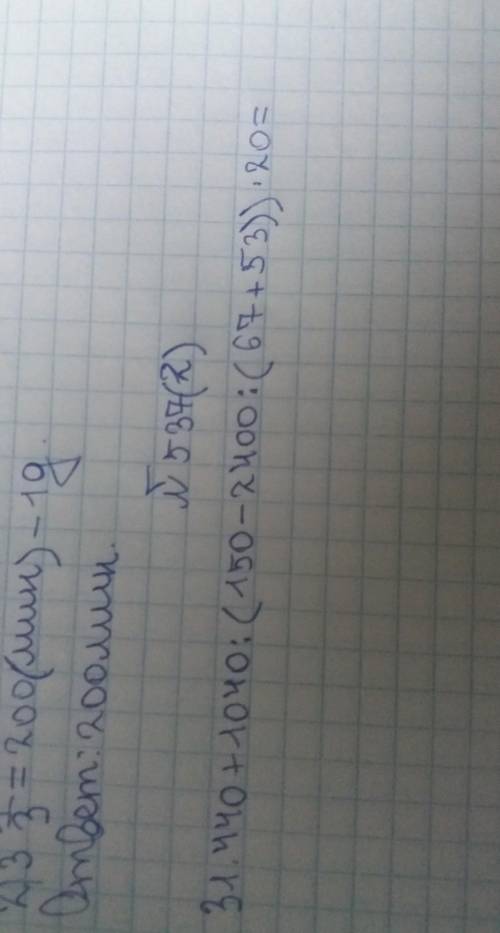 2) 3 1/3 = 200(мин) - 1g.
Ответ: 200мин.
№ 537(2)
31·440+1040:(150-2400:(67+53))·20=